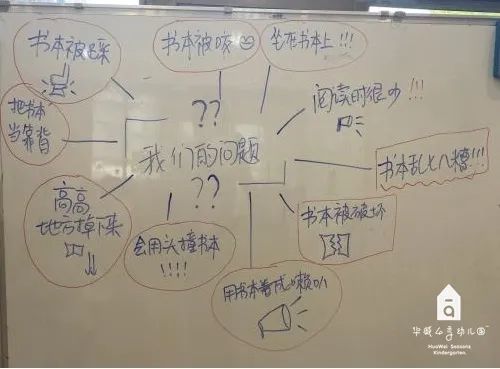 书本被踩
书本被咬
坐在书本上!!!
把书本
当靠背
??
阅读时很吵!!!
我们的问题
书本乱七八糟!!!
??
高高
地方掉下来
会用头撞书本
!!!!
书本被破坏
用书本卷成喇叭
华威四季幼儿园
HuaWei Seasons
Kindergarten.